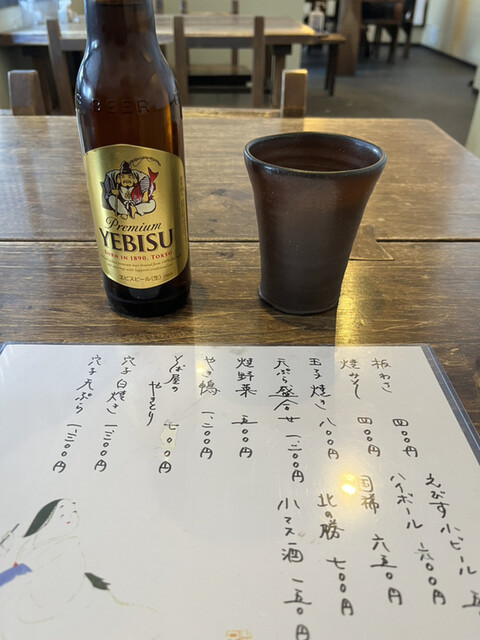 BEER
Premium
YEBISU
BORN IN 1890, TOKYO
ヱビスビール〈生〉
板わさ 四〇〇円
焼みそ 四〇〇円
玉子焼き 八〇〇円
天ぷら盛合せ 一、二〇〇円
焼野菜 五〇〇円
やき鴨 一、二〇〇円
そば屋の
やきとり 七〇〇円
穴子白焼き 一、三〇〇円
穴子天ぷら 一、三〇〇円
えびす小ビール 五
ハイボール 六〇〇円
国稀 六五〇円
北の勝 七〇〇円
小マス酒 一五〇円